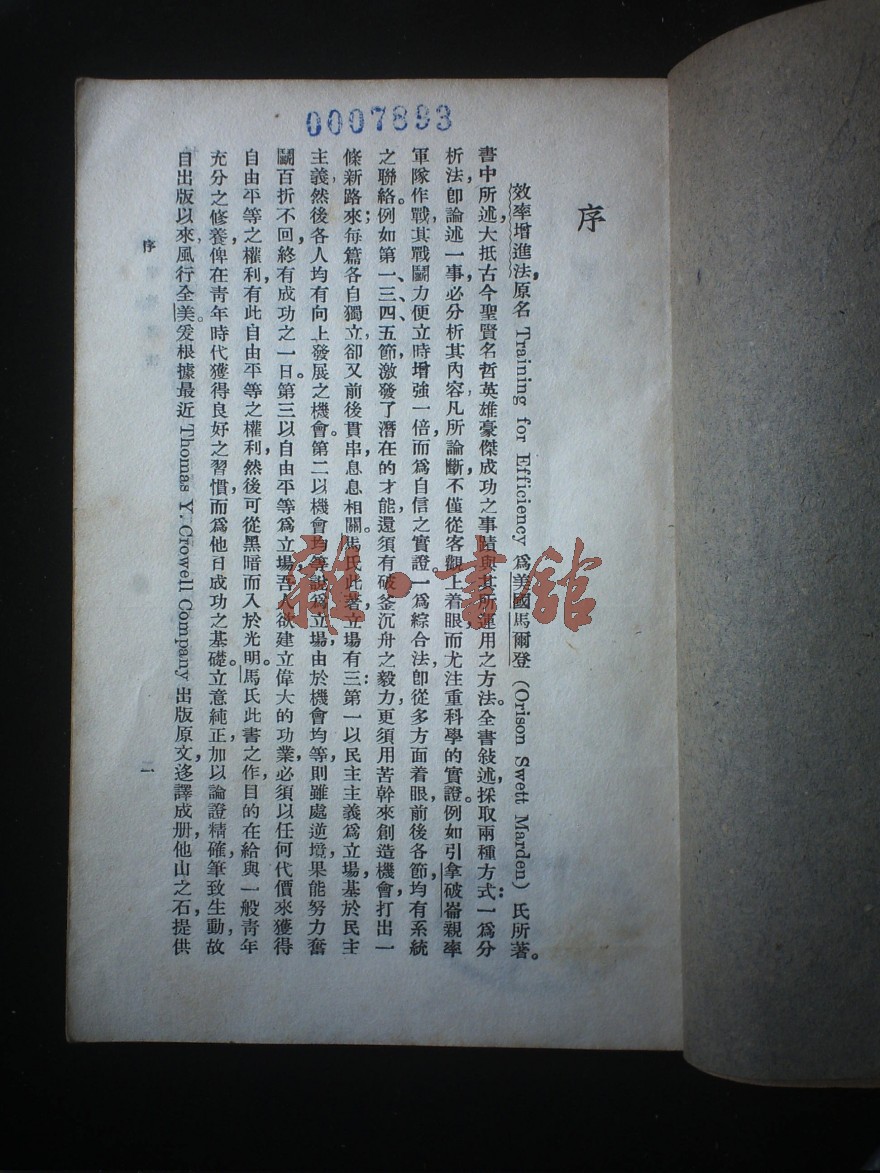 0007893
序
效率增進法,原名 Training for Efficiency 爲美國馬爾登 (Orison Swett Marden) 氏所著。
書中所述,大抵古今聖賢名哲英雄豪傑成功之事蹟與其所運用之方法。全書敍述,採取兩種方式:一爲分
析法,卽論述一事,必分析其內容,凡所論斷,不僅從客觀上着眼,而尤注重科學的實證。例如引拿破崙親率
軍隊作戰,其戰鬬力便立時增強一倍,而爲自信之實證。一爲綜合法,卽從多方面着眼,前後各節,均有系統
之聯絡。例如第一、三、四、五節,激發了潛在的才能,還須有破釜沉舟之毅力,更須用苦幹來創造機會,打出一
條新路來;每篇各自獨立,卻又前後貫串,息息相關。馬氏此著,立場有三:第一以民主主義爲立場,基於民主
主義,然後各人均有向上發展之機會。第二以機會均等說爲立場,由於機會均等,則雖處逆境,果能努力奮
鬬,百折不回,終有成功之一日。第三以自由平等爲立場,吾人欲建立偉大的功業,必須以任何代價來獲得
自由平等之權利,有此自由平等之權利,然後可從黑暗而入於光明。馬氏此書之作,目的在給與一般靑年
充分之修養,俾在靑年時代獲得良好之習慣,而爲他日成功之基礎。立意純正,加以論證精確,筆致生動,故
自出版以來,風行全美。爰根據最近 Thomas Y. Crowell Company 出版原文,迻譯成册,他山之石,提供
序
一
雜·書館